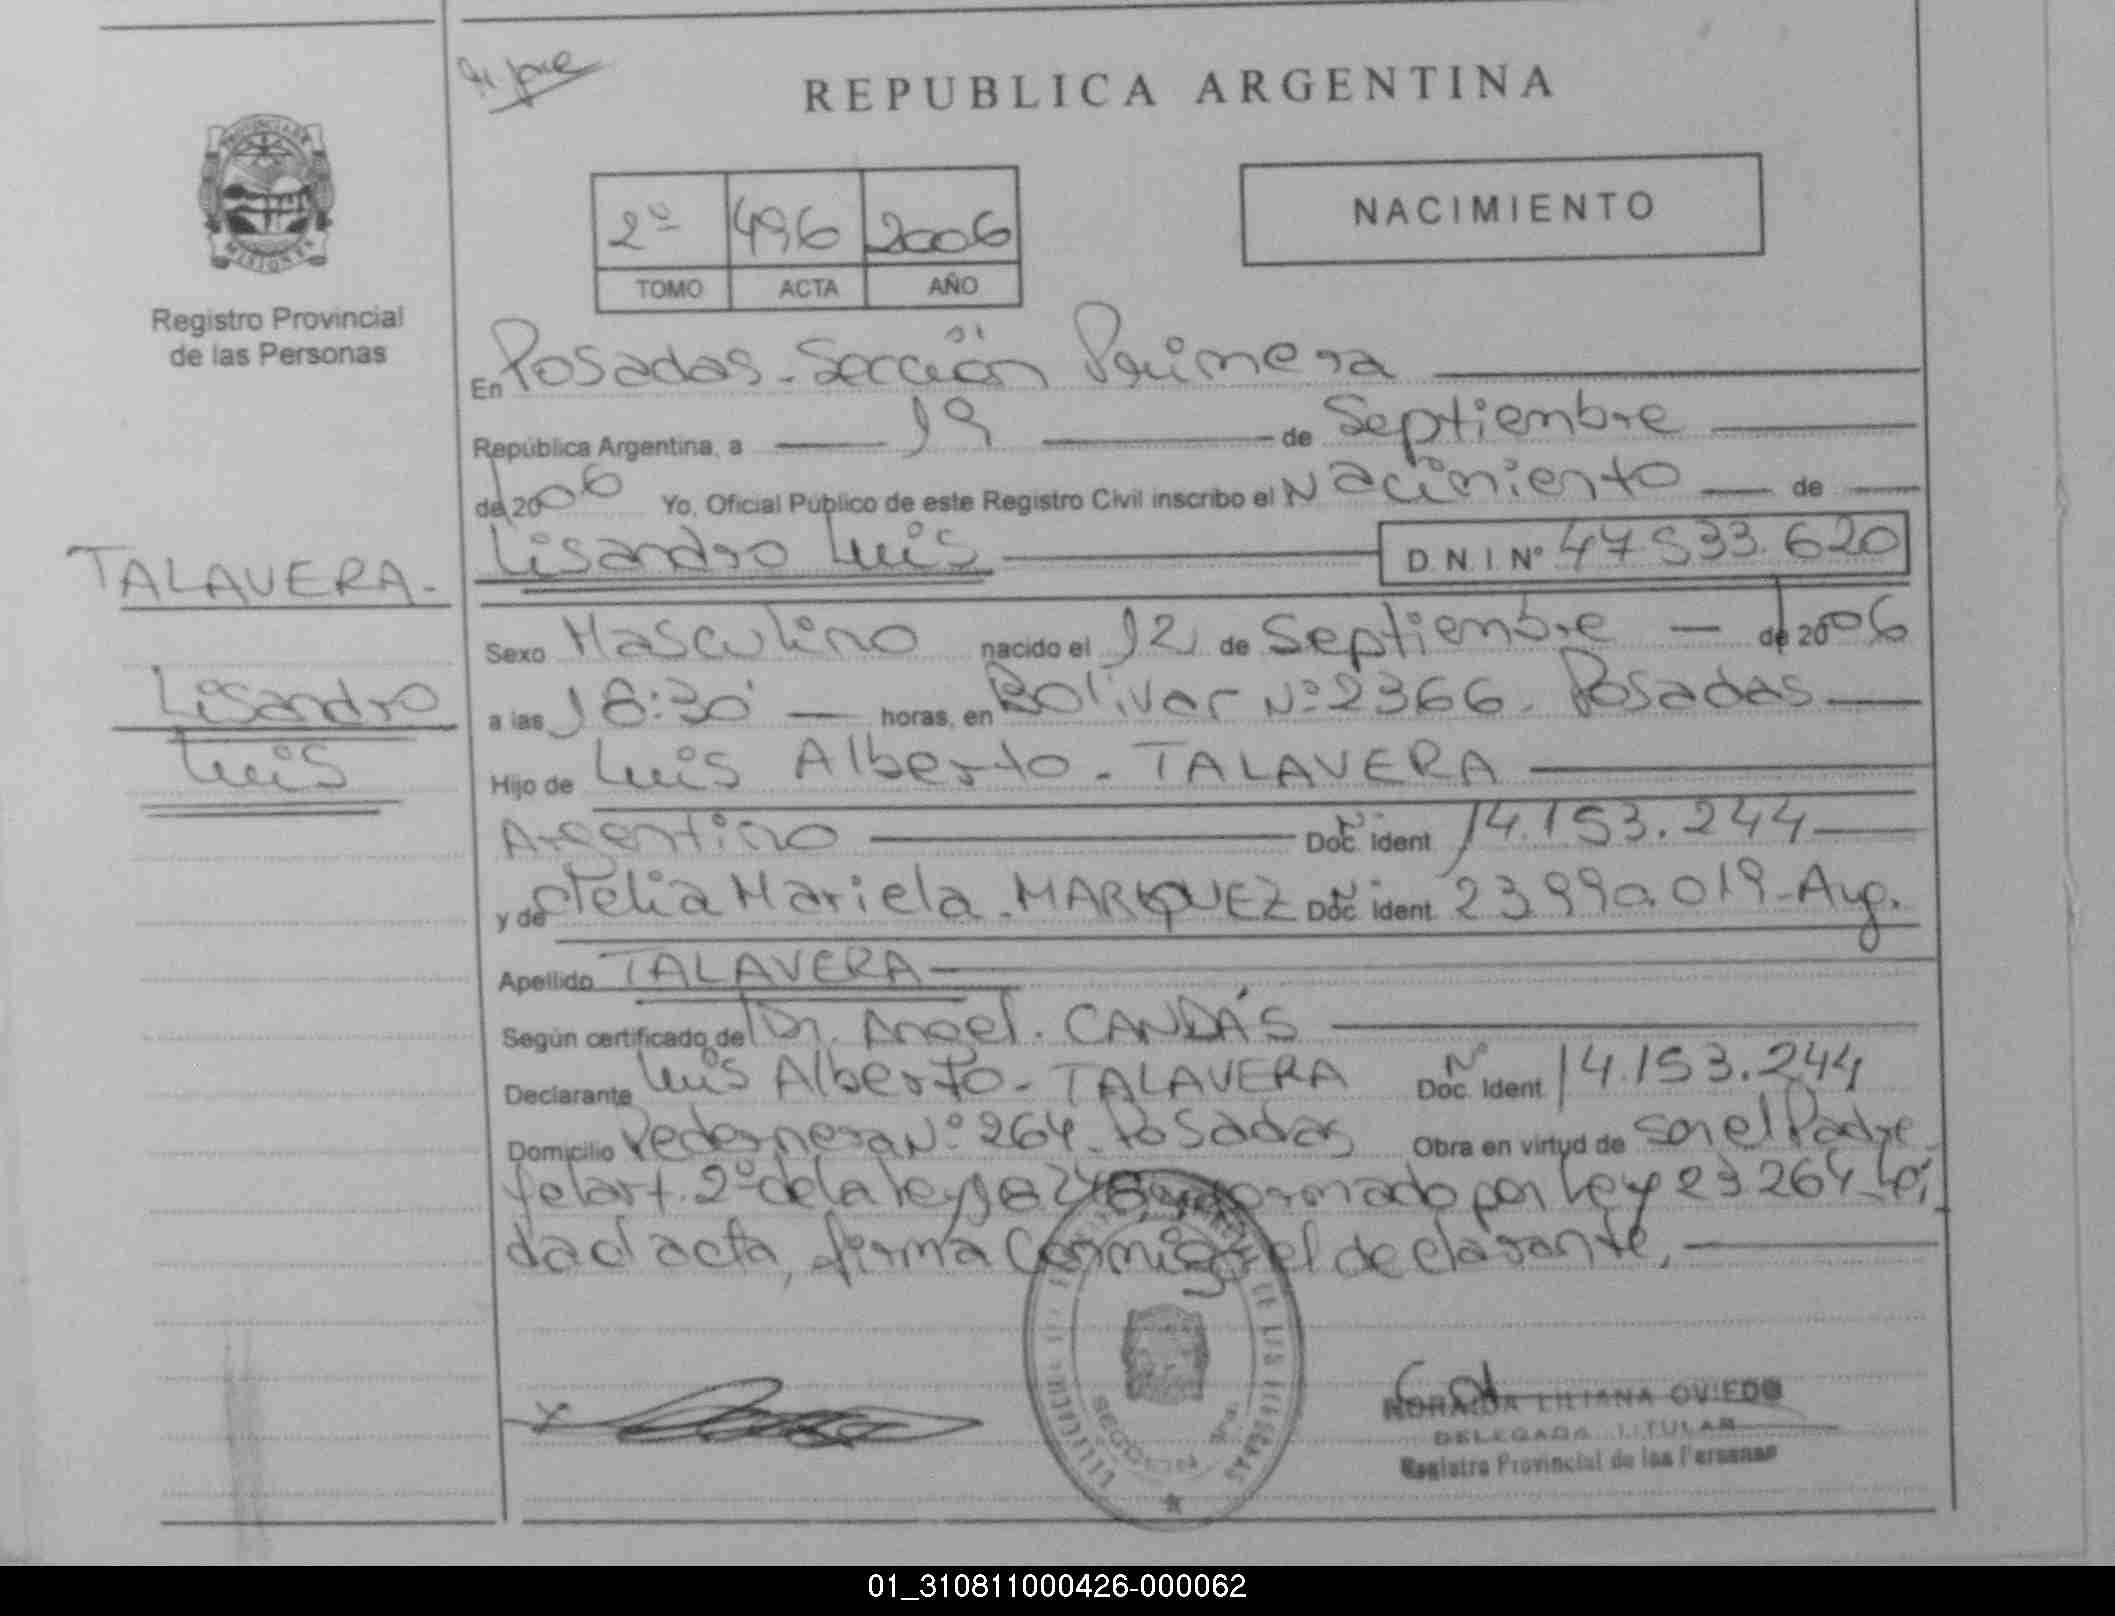 REPUBLICA ARGENTINA
PROVINCIA DE
MISIONES
Registro Provincial
de las Personas
2º 496 2006
TOMO ACTA AÑO
NACIMIENTO
En Posadas - Sección Primera
República Argentina, a 19 de Septiembre
de 2006 Yo, Oficial Público de este Registro Civil inscribo el Nacimiento de
Lisandro Luis D.N.I. Nº 47.533.620
TALAVERA.
Lisandro
Luis
Sexo Masculino nacido el 12 de Septiembre de 2006
a las 18:30 horas, en Bolivar Nº 2366. Posadas
Hijo de Luis Alberto - TALAVERA
Argentino Doc. ident Nº 14.153.244
y de Telia Mariela - MARQUEZ Doc. ident Nº 23.990.019 - Arg.
Apellido TALAVERA
Según certificado de Dr. Angel. CANDÁS
Declarante Luis Alberto - TALAVERA Doc. Ident Nº 14.153.244
Domicilio Pedernera Nº 264. Posadas Obra en virtud de Ser el Padre
y el art. 2º de la ley 18.248 reformado por Ley 23264 Leí
da el acta, firma conmigo el declarante.
NORAIDA LILIANA OVIEDO
DELEGADA TITULAR
Registro Provincial de las Personas
01_310811000426-000062